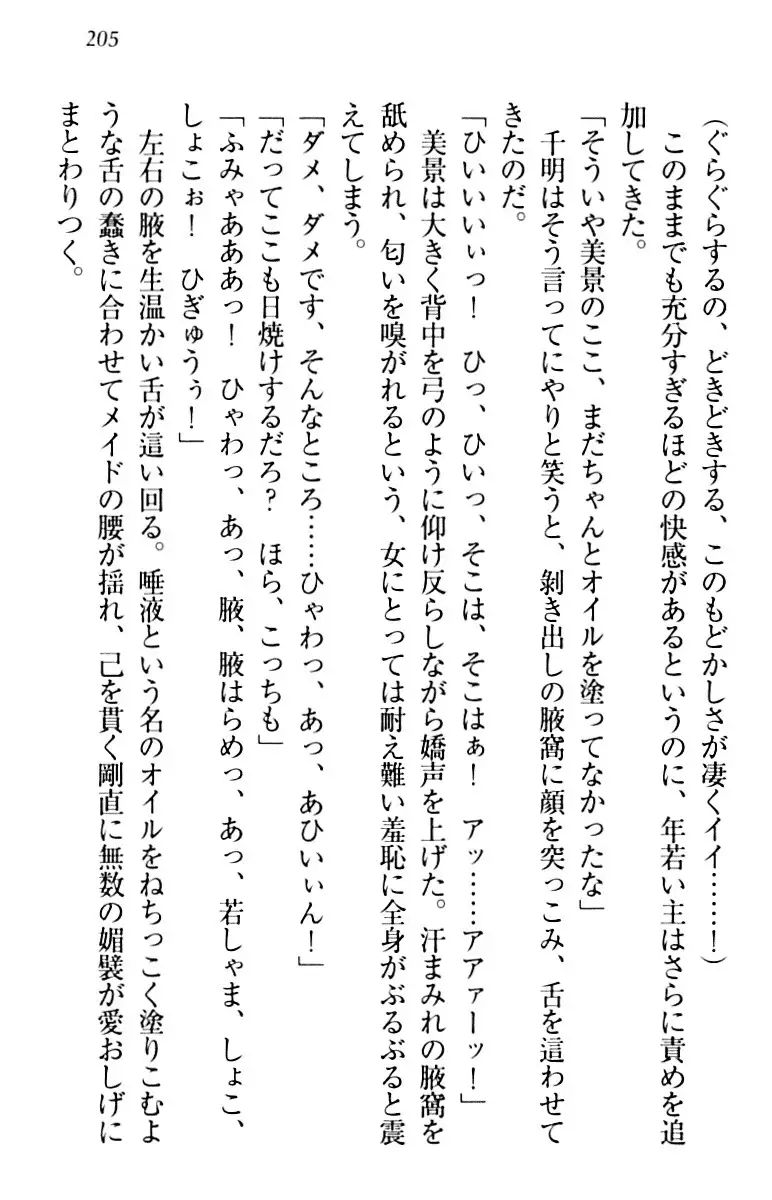 205
（ぐらぐらするの、どきどきする、このもどかしさが凄くイイ……！）
このままでも充分すぎるほどの快感があるというのに、年若い主はさらに責めを追
加してきた。
「そういや美景のここ、まだちゃんとオイルを塗ってなかったな」
千明はそう言ってにやりと笑うと、剝き出しの腋窩に顔を突っこみ、舌を這わせて
きたのだ。
「ひいいいぃっ！　ひっ、ひいっ、そこは、そこはぁ！　アッ……アアァーッ！」
美景は大きく背中を弓のように仰け反らしながら嬌声を上げた。汗まみれの腋窩を
舐められ、匂いを嗅がれるという、女にとっては耐え難い羞恥に全身がぶるぶると震
えてしまう。
「ダメ、ダメです、そんなところ……ひゃわっ、あっ、あひいぃん！」
「だってここも日焼けするだろ？　ほら、こっちも」
「ふみゃあああっ！　ひゃわっ、あっ、腋、腋はらめっ、あっ、若しゃま、しょこ、
しょこぉ！　ひぎゅうぅ！」
左右の腋を生温かい舌が這い回る。唾液という名のオイルをねちっこく塗りこむよ
うな舌の蠢きに合わせてメイドの腰が揺れ、己を貫く剛直に無数の媚襞が愛おしげに
まとわりつく。